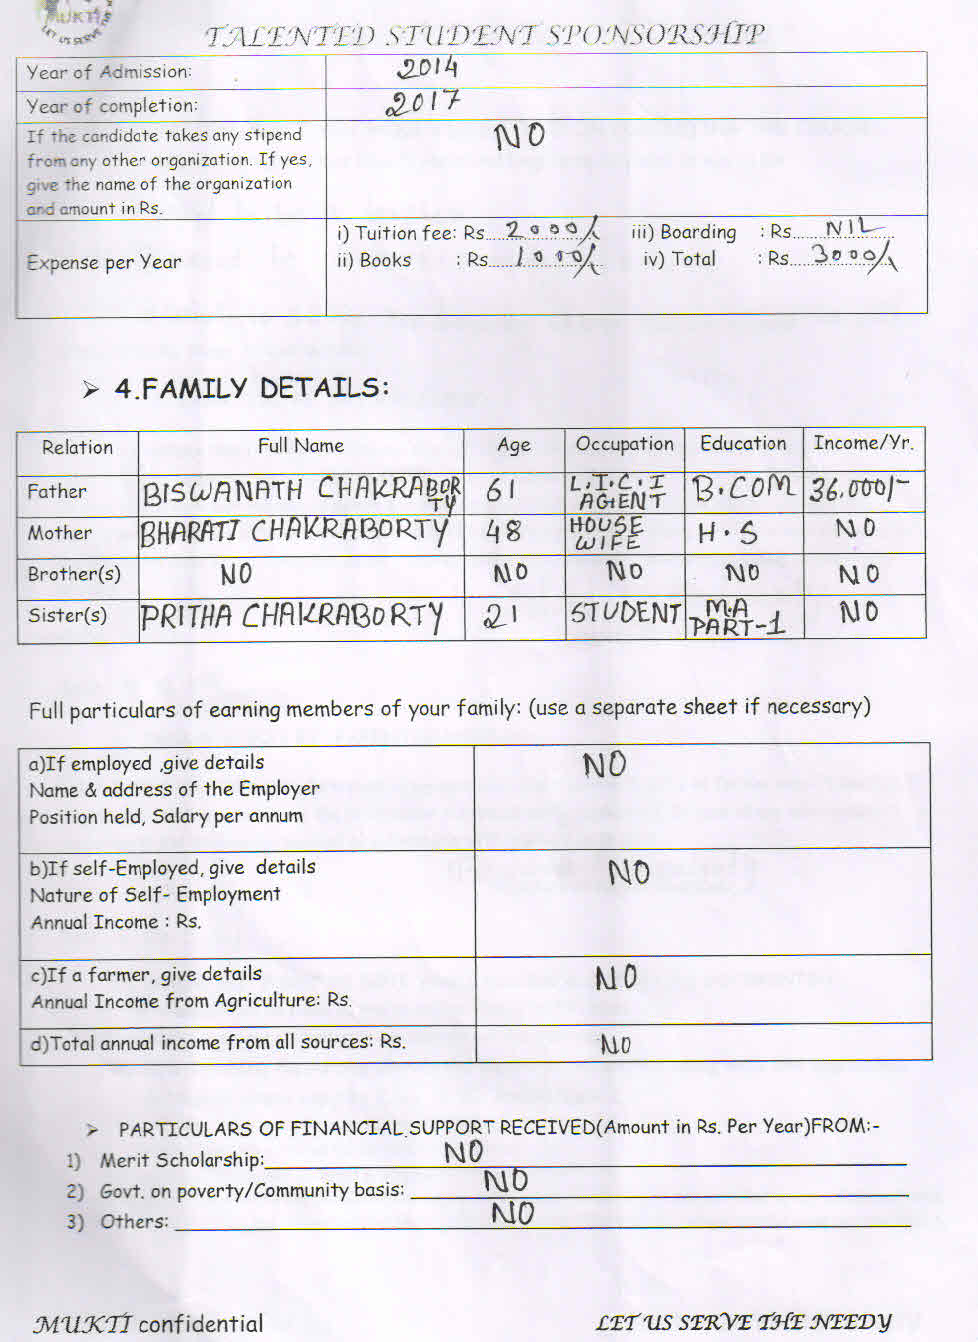 MUKTI
LET US SERVE THE
TALENTED STUDENT SPONSORSHIP
Year of Admission: 2014
Year of completion: 2017
If the candidate takes any stipend
from any other organization. If yes,
give the name of the organization
and amount in Rs.
NO
Expense per Year
i) Tuition fee: Rs. 2000/- iii) Boarding : Rs. NIL
ii) Books : Rs. 1000/- iv) Total : Rs. 3000/-
➢ 4.FAMILY DETAILS:
Relation Full Name Age Occupation Education Income/Yr.
Father BISWANATH CHAKRABORTY 61 L.I.C.I AGENT B.COM 36,000/-
Mother BHARATI CHAKRABORTY 48 HOUSE WIFE H.S NO
Brother(s) NO NO NO NO NO
Sister(s) PRITHA CHAKRABORTY 21 STUDENT M.A PART-1 NO
Full particulars of earning members of your family: (use a separate sheet if necessary)
a)If employed ,give details
Name & address of the Employer
Position held, Salary per annum
NO
b)If self-Employed, give details
Nature of Self- Employment
Annual Income : Rs.
NO
c)If a farmer, give details
Annual Income from Agriculture: Rs.
NO
d)Total annual income from all sources: Rs. NO
➢ PARTICULARS OF FINANCIAL SUPPORT RECEIVED(Amount in Rs. Per Year)FROM:-
1) Merit Scholarship: NO
2) Govt. on poverty/Community basis: NO
3) Others: NO
MUKTI confidential LET US SERVE THE NEEDY